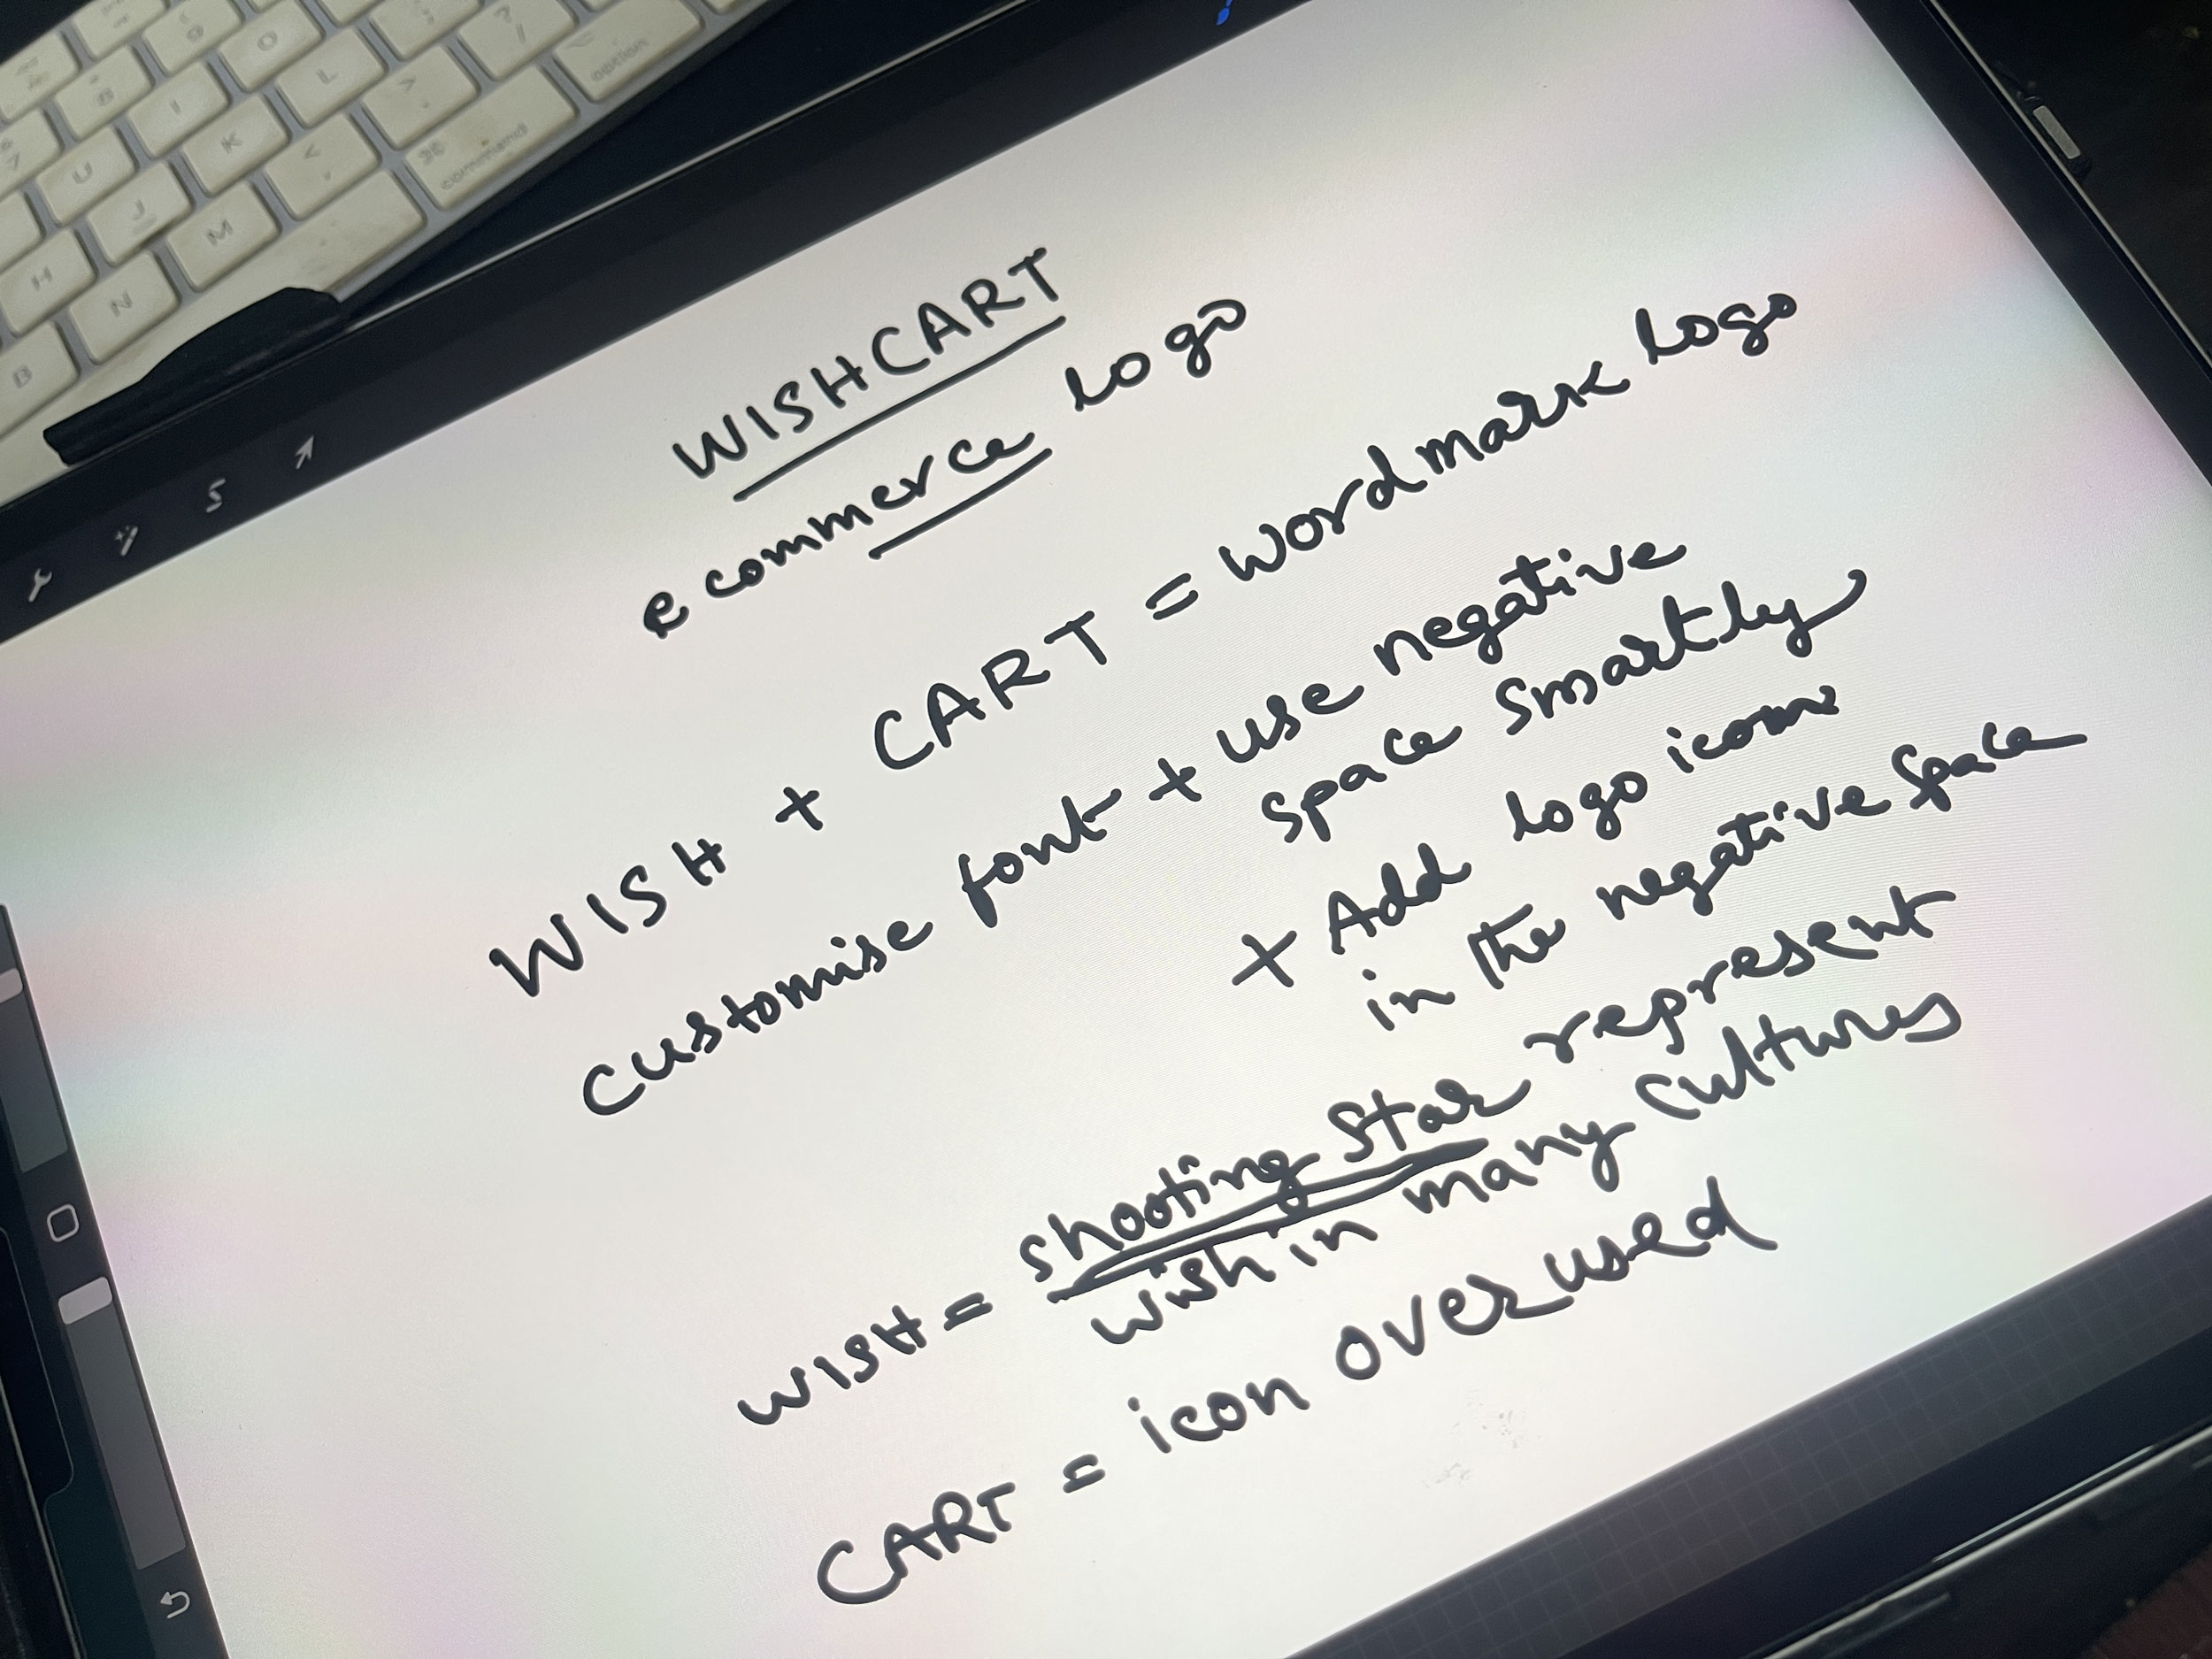 WISHCART
ecommerce logo
WISH + CART = wordmark logo
customise font + use negative
space smartly
+ Add logo icons
in the negative space
WISH = shooting star represent
wish in many cultures
CART = icon overused
O
L
option
U
I
K
command
H
J
M
B
N